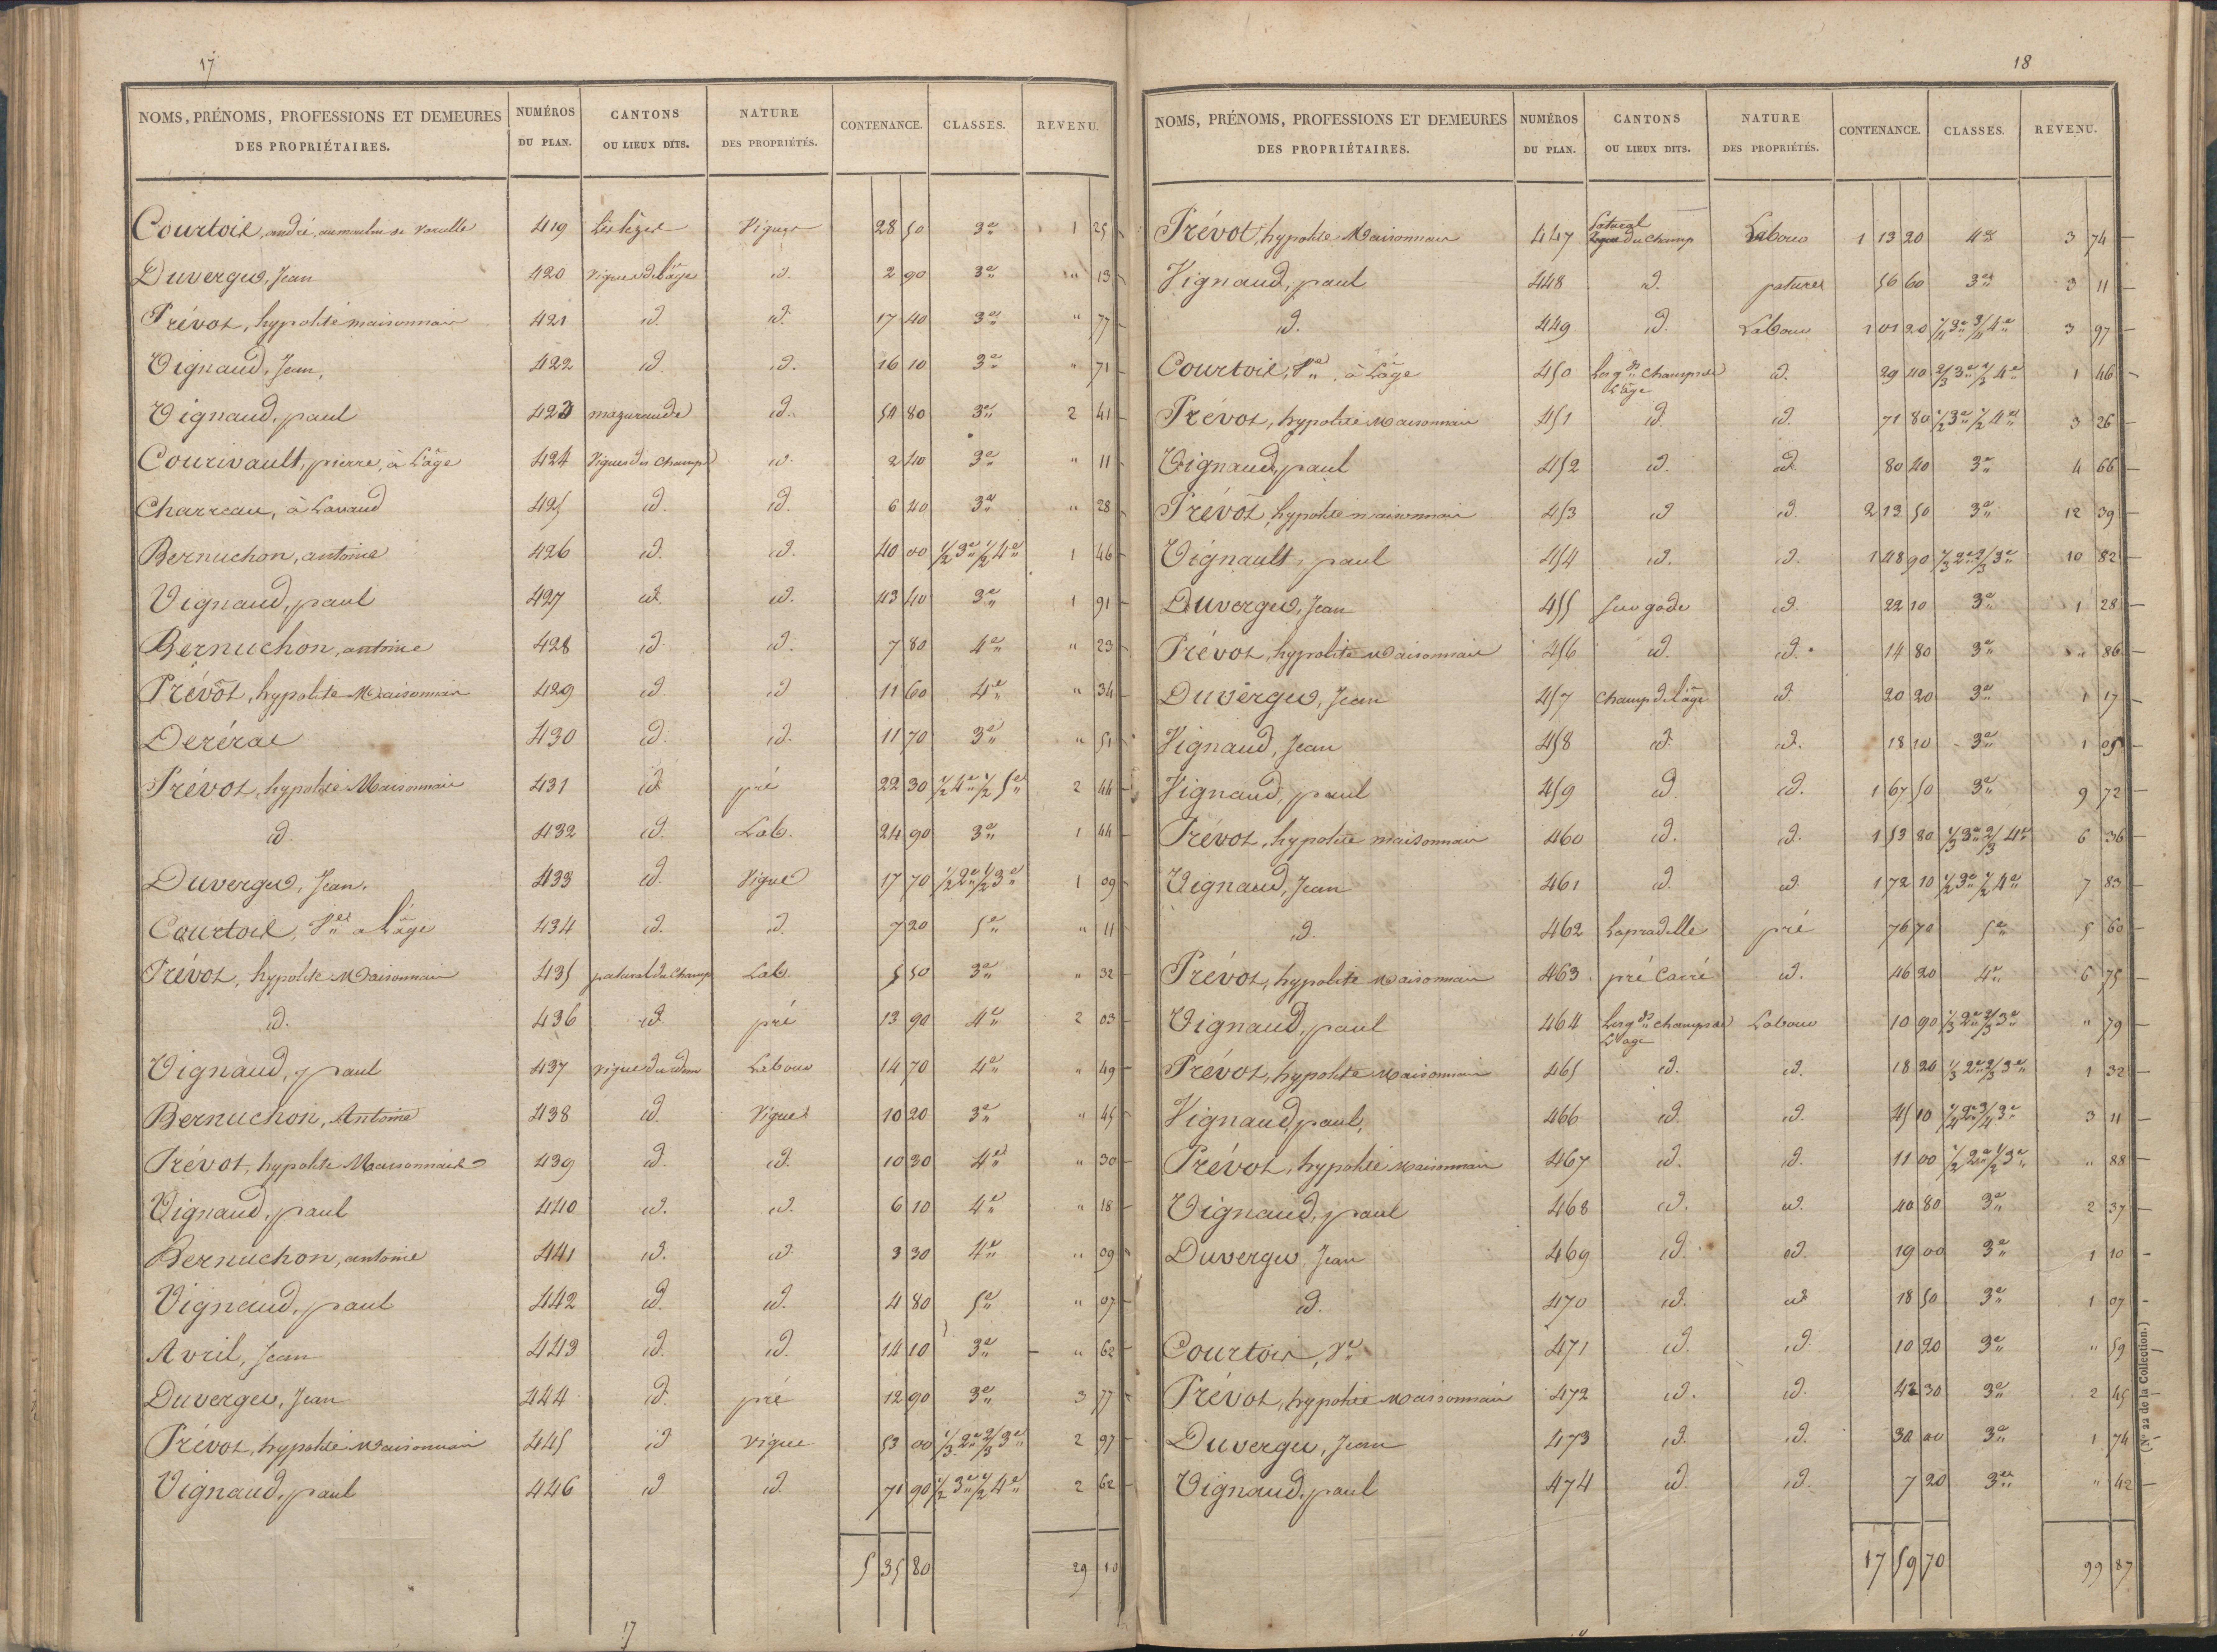 17
NOMS, PRÉNOMS, PROFESSIONS ET DEMEURES DES PROPRIÉTAIRES. NUMÉROS DU PLAN. CANTONS OU LIEUX DITS. NATURE DES PROPRIÉTÉS. CONTENANCE. CLASSES. REVENU.
Courtois, andré, au moulin de 419 Vignes 28 50 3e 1 25
Duverger, Jean 420 Vignes de l'âge id. 2 90 3e " 13
Prévot, hypolite maisonnais 421 id. id. 17 40 3e " 77
Vignaud, Jean, 422 id. id. 16 10 3e " 71
Vignaud, paul 423 mazuraude id. 54 80 3e 2 41
Courivault, pierre, à L'âge 424 Vignes des Champs id. 2 40 3e " 11
Charreau, à Lavaud 425 id. id. 6 40 3e " 28
Bernuchon, antoine 426 id. id. 40 00 1/2 3e 1/2 4e 1 46
Vignaud, paul 427 id. id. 43 40 3e 1 91
Bernuchon, antoine 428 id. id. 7 80 4e " 23
Prévôt, hypolite Maisonnais 429 id. id. 11 60 4e " 34
Derérac 430 id. id. 11 70 3e " 51
Prévot, hypolite Maisonnais 431 id. pré 22 30 1/2 4e 1/2 5e 2 44
id. 432 id. Lab. 24 90 3e 1 44
Duverger, Jean, 433 id. Vigne 17 70 1/2 2e 1/2 3e 1 09
Courtois, Ve à L'âge 434 id. id. 7 20 5e " 11
Prévot, hypolite Maisonnais 435 patural du Champ Lab. 5 50 3e " 32
id. 436 id. pré 13 90 4e 2 03
Vignaud, paul 437 Labour 14 70 4e " 49
Bernuchon, Antoine 438 id. Vignes 10 20 3e " 45
Prévot, hypolite Maisonnais 439 id. id. 10 30 4e " 30
Vignaud, paul 440 id. id. 6 10 4e " 18
Bernuchon, antoine 441 id. id. 3 30 4e " 09
Vignaud, paul 442 id. id. 4 80 5e " 07
Avril, Jean 443 id. id. 14 10 3e " 62
Duverger, Jean 444 id. pré 12 90 3e 3 77
Prévot, hypolite Maisonnais 445 id. vigne 53 00 1/3 2e 2/3 3e 2 97
Vignaud, paul 446 id. id. 71 90 1/2 3e 1/2 4e 2 62
5 35 80 29 10
17
18
NOMS, PRÉNOMS, PROFESSIONS ET DEMEURES DES PROPRIÉTAIRES. NUMÉROS DU PLAN. CANTONS OU LIEUX DITS. NATURE DES PROPRIÉTÉS. CONTENANCE. CLASSES. REVENU.
Prévot, hypolite Maisonnais 447 Patural du Champ Labour 1 13 20 4e 3 74
Vignaud, paul 448 id. patures 56 60 3e 3 11
id. 449 id. Labour 1 01 20 1/4 3e 3/4 4e 3 97
Courtois, Ve, à L'âge 450 Les gds Champs de L'âge id. 29 40 2/3 3e 1/3 4e 1 46
Prévot, hypolite Maisonnais 451 id. id. 71 80 1/2 3e 1/2 4e 3 26
Vignaud, paul 452 id. id. 80 40 3e 4 66
Prévot, hypolite maisonnais 453 id. id. 2 13 50 3e 12 39
Vignault, paul 454 id. id. 1 48 90 1/3 2e 2/3 3e 10 82
Duverger, Jean 455 id. 22 10 3e 1 28
Prévot, hypolite Maisonnais 456 id. id. 14 80 3e " 86
Duverger, Jean 457 Champ de l'âge id. 20 20 3e 1 17
Vignaud, Jean 458 id. id. 18 10 3e 1 05
Vignaud, paul 459 id. id. 1 67 50 3e 9 72
Prévot, hypolite maisonnais 460 id. id. 1 53 80 1/3 3e 2/3 4e 6 36
Vignaud, Jean 461 id. id. 1 72 10 1/2 3e 1/2 4e 7 83
id. 462 Lapradelle pré 76 70 5e 5 60
Prévot, hypolite Maisonnais 463 pré Carré id. 46 20 4e 6 75
Vignaud, paul 464 Les gds champs de L'age Labour 10 90 1/3 2e 2/3 3e " 79
Prévot, hypolite Maisonnais 465 id. id. 18 20 1/3 2e 2/3 3e 1 32
Vignaud paul, 466 id. id. 45 10 1/4 2e 3/4 3e 3 11
Prévot, hypolite Maisonnais 467 id. id. 11 00 1/2 2e 1/2 3e " 88
Vignaud, paul 468 id. id. 40 80 3e 2 37
Duverger, Jean 469 id. id. 19 00 3e 1 10
id. 470 id. id. 18 50 3e 1 07
Courtois, Ve 471 id. id. 10 20 3e " 59
Prévot, hypolite Maisonnais 472 id. id. 42 30 3e 2 45
Duverger, Jean 473 id. id. 30 00 3e 1 74
Vignaud, paul 474 id. id. 7 20 3e " 42
17 59 70 99 87
(N° 22 de la Collection.)